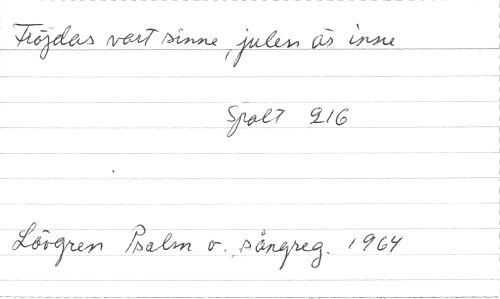 Fröjdas vart sinne, julen är inne
Spalt 216
Lövgren Psalm o. sångreg. 1964